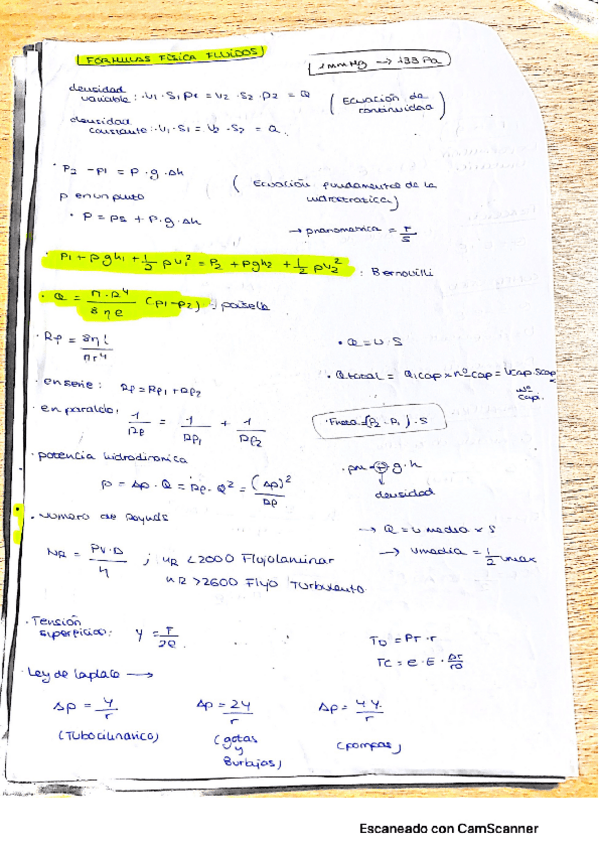 FORMULAS FÍSICA FLUIDOS
1 mmHg → 133 Pa
densidad
variable: · V1 · S1 ρ1 = V2 · S2 · ρ2 = Q (Ecuación de
continuidad)
densidad
constante: · V1 · S1 = V2 · S2 = Q.
· P2 - P1 = ρ · g · Δh (Ecuación fundamental de la
hidrostática)
P en un punto
· P = PB + ρ · g · Δh → pmanometrica = F/S
· P1 + ρgh1 + 1/2 ρV1² = P2 + ρgh2 + 1/2 ρV2² : Bernouilli
· Q = π·R⁴/8ηe (P1-P2) :
· Rp = 8ηl/πr⁴ · Q = V · S
· en serie: Rp = Rp1 + Rp2 · Qtotal = Q1cap x nºcap = Vcap Scap nº cap.
· en paralelo: 1/Rp = 1/Rp1 + 1/Rp2 · Fneta = (P2 - P1) · S
· potencia hidrodinamica
P = Δp · Q = Rp · Q² = (Δp)²/Rp
g · h
densidad
· Numero de Reynolds → Q = V media x S
NR = ρV·D/η ; NR < 2000 Flujo laminar → Vmedia = 1/2 Vmax
NR > 2600 Flujo Turbulento
· Tensión
superficial: γ = F/2l. TD = PT · r
TC = e · E · Δr/r0
· Ley de Laplace →
Δp = γ/r Δp = 2γ/r Δp = 4γ/r
(Tubo cilíndrico) (gotas
y
Burbujas) (pompas)
Escaneado con CamScanner